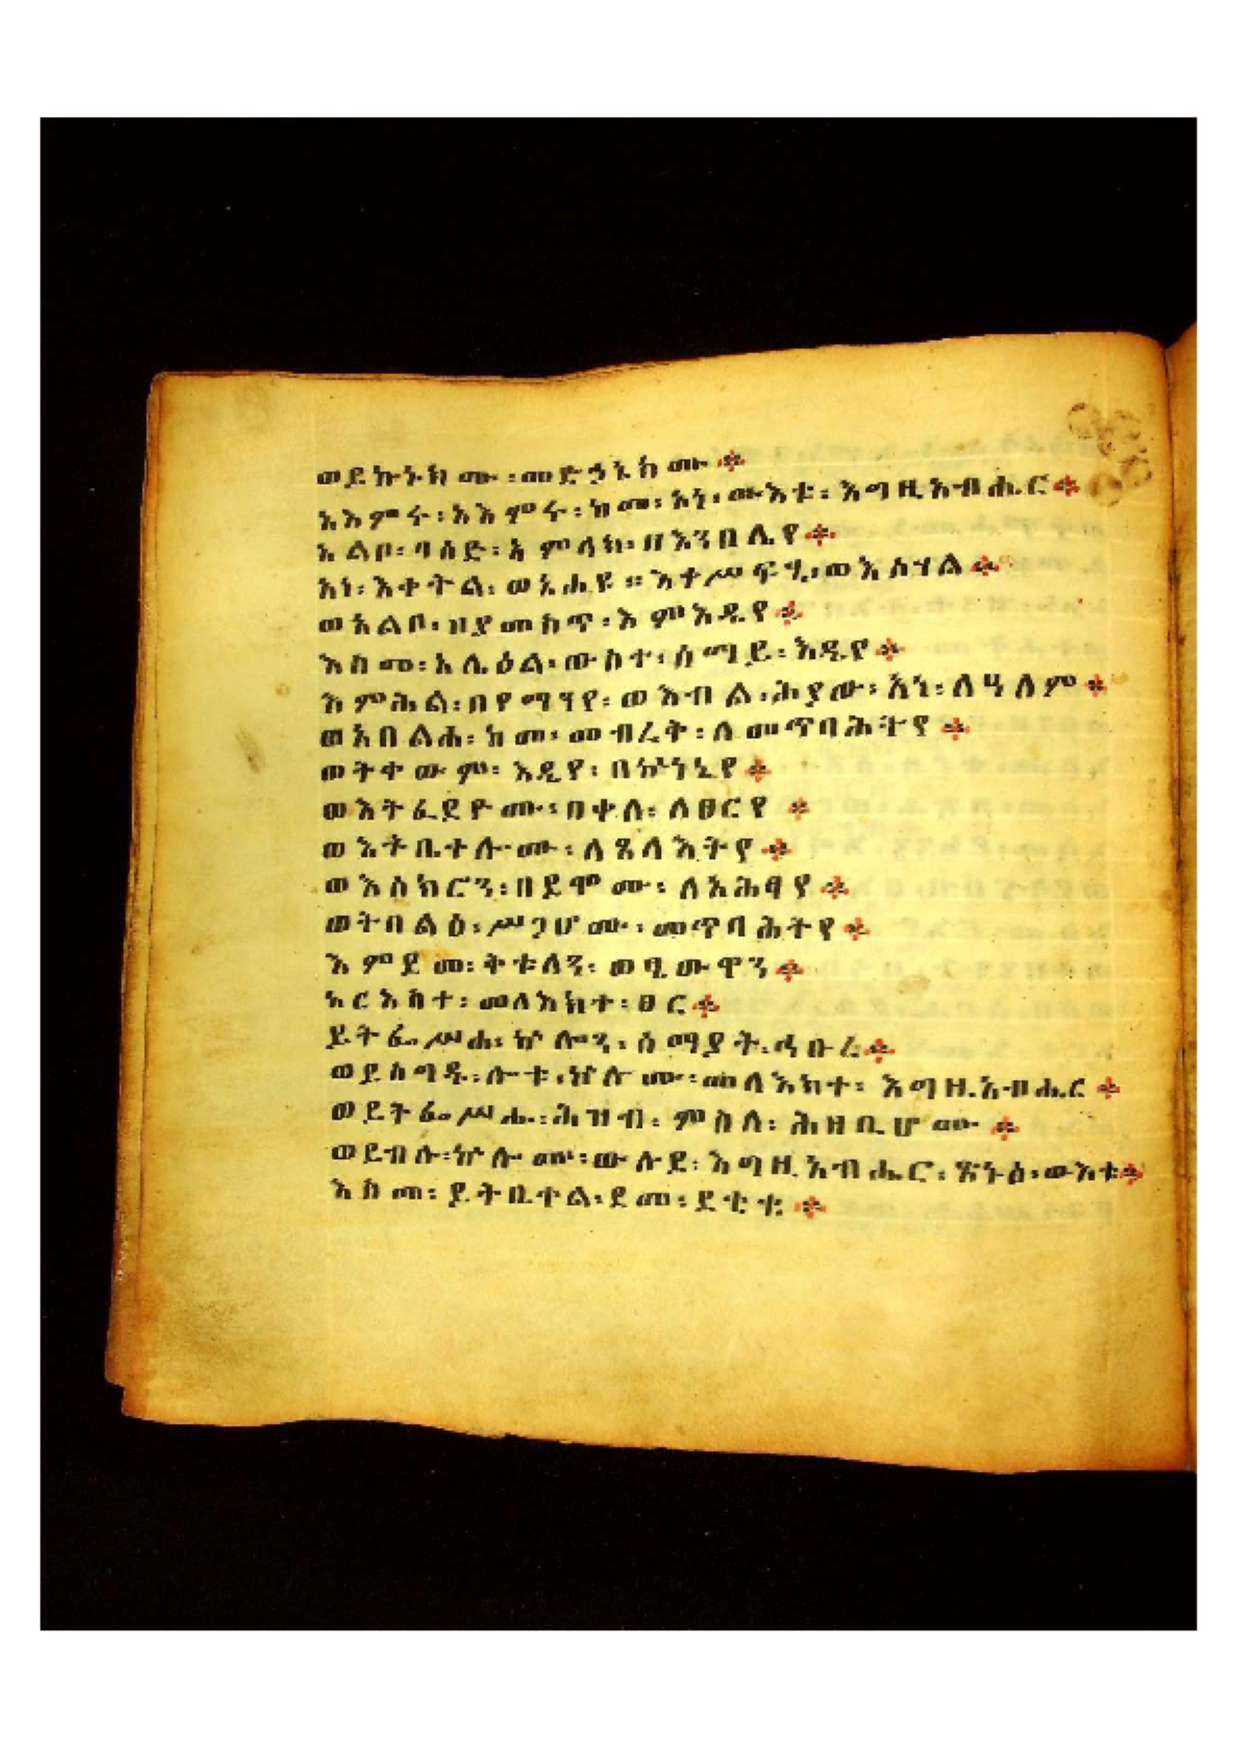 ወይኩኑክሙ፡መድኃኒክሙ፨
አእምሩ፡አእምሩ፡ከመ፡አነ፡ውእቱ፡እግዚአብሔር፨
አልቦ፡ባዕድ፡አምላክ፡ዘእንበሌየ፨
አነ፡እቀትል፡ወአሐዩ።እቀሥፍኒ፡ወእሣሃል፨
ወአልቦ፡ዘያመስጥ፡እምእዴየ፨
እስመ፡አሌዕል፡ውስተ፡ሰማይ፡እዴየ፨
እምሕል፡በየማንየ፡ወእብል፡ሕያው፡አነ፡ለዓለም፨
ወአበልሕ፡ከመ፡መብረቅ፡ለመጥባሕትየ፨
ወትቀውም፡እዲየ፡በኵነኔየ፨
ወእትፈደዮሙ፡በቀለ፡ለፀርየ፨
ወእትቤቀሎሙ፡ለጸላእትየ፨
ወእሰክሮን፡በደሞሙ፡ለአሕፃየ፨
ወትበልዕ፡ሥጋሆሙ፡መጥባሕትየ፨
እምደመ፡ቅቱለን፡ወፂውዋን፨
አርእስተ፡መለእክተ፡ፀር፨
ይትፌሥሐ፡ኵሎን፡ሰማያት፡ኅቡረ፨
ወይስግዱ፡ሎቱ፡ኵሎሙ፡መላእክተ፡እግዚአብሔር፨
ወይትፌሥሑ፡ሕዝብ፡ምስለ፡ሕዘቢሆሙ፨
ወይብሉ፡ኵሎሙ፡ውሉደ፡እግዚአብሔር፡ጽኑዕ፡ውእቱ፨
እስመ፡ይትቤቀል፡ደመ፡ደቂቁ፨